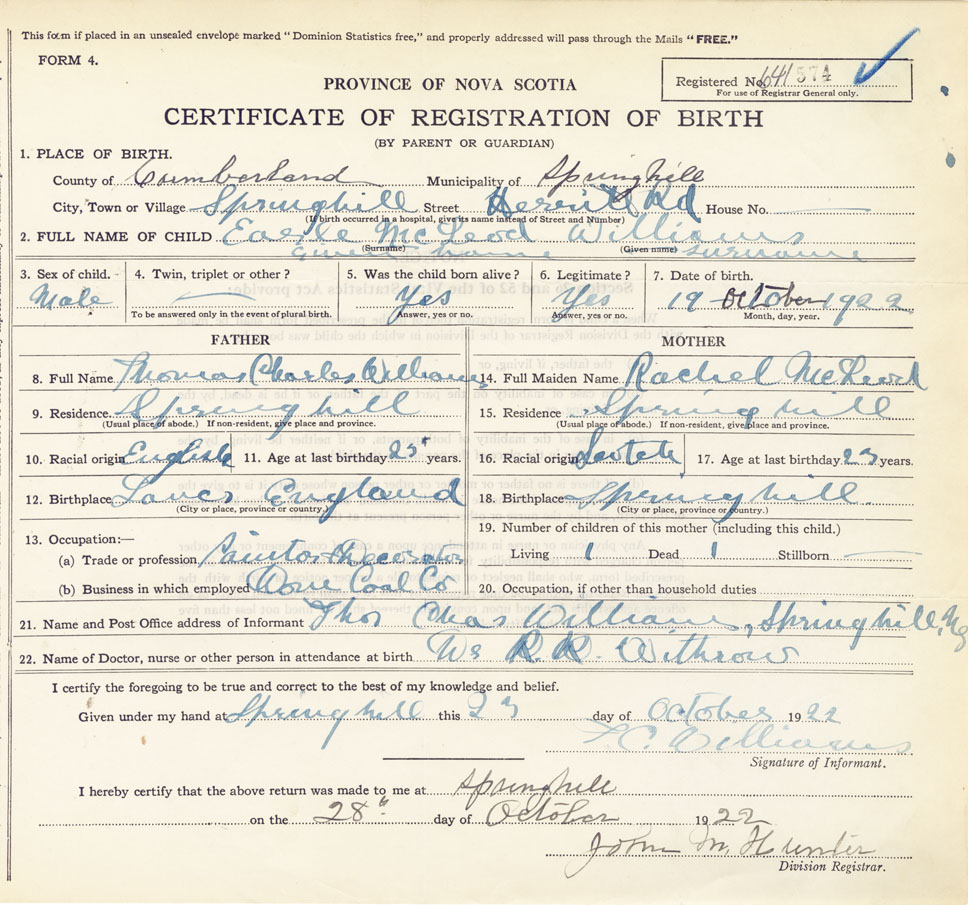 This form if placed in an unsealed envelope marked "Dominion Statistics free," and properly addressed will pass through the Mails "FREE."
FORM 4.
Registered No. 641574
For use of Registrar General only.
PROVINCE OF NOVA SCOTIA
CERTIFICATE OF REGISTRATION OF BIRTH
(BY PARENT OR GUARDIAN)
1. PLACE OF BIRTH.
County of Cumberland Municipality of Springhill
City, Town or Village Springhill Street Rd House No.
(If birth occurred in a hospital, give its name instead of Street and Number)
2. FULL NAME OF CHILD Earle McLeod Williams
(Surname) (Given name)
Given name surname
3. Sex of child. 4. Twin, triplet or other? 5. Was the child born alive? 6. Legitimate? 7. Date of birth.
Male Yes Yes 19 October 1922
To be answered only in the event of plural birth. Answer, yes or no. Answer, yes or no. Month, day, year.
FATHER MOTHER
8. Full Name Thomas Charles Williams 14. Full Maiden Name Rachel McLeod
9. Residence. Springhill 15. Residence Springhill
(Usual place of abode.) If non-resident, give place and province. (Usual place of abode.) If non-resident, give place and province.
10. Racial origin English 11. Age at last birthday 25 years. 16. Racial origin Scotch 17. Age at last birthday 23 years.
12. Birthplace Lancs England 18. Birthplace Springhill
(City or place, province or country.) (City or place, province or country.)
13. Occupation:— 19. Number of children of this mother (including this child.)
(a) Trade or profession Painter Decorator Living 1 Dead 1 Stillborn
(b) Business in which employed Coal Co 20. Occupation, if other than household duties
21. Name and Post Office address of Informant Thos Chas Williams, Springhill, NS
22. Name of Doctor, nurse or other person in attendance at birth R. Withrow
I certify the foregoing to be true and correct to the best of my knowledge and belief.
Given under my hand at Springhill this 23 day of October 1922
T. C. Williams
Signature of Informant.
I hereby certify that the above return was made to me at Springhill
on the 28th day of October 1922
John M. Hunter
Division Registrar.